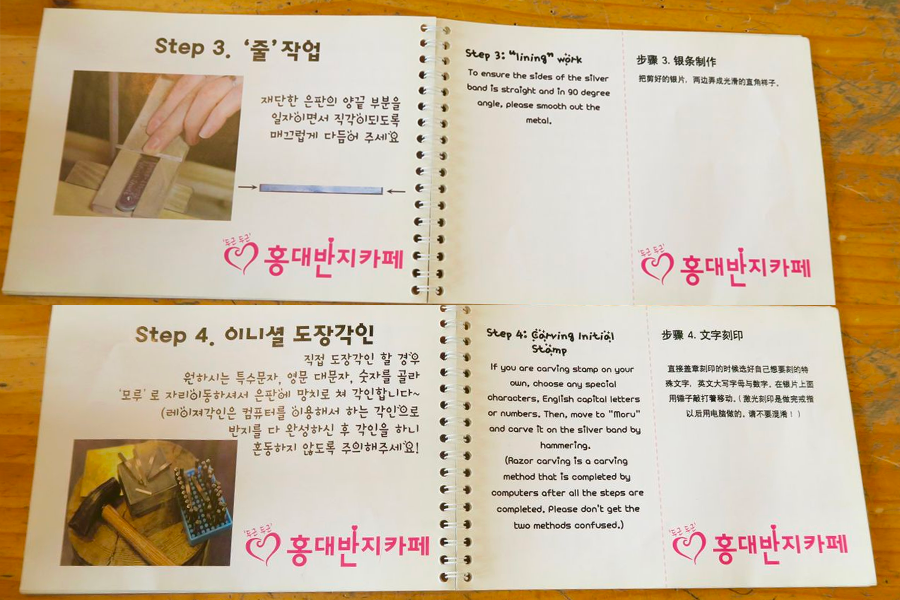 Step 3. '줄'작업
재단한 은판의 양끝 부분을
일자이면서 직각이되도록
매끄럽게 다듬어 주세요
'두근 두근'
홍대반지카페
Step 3: "lining" work
To ensure the sides of the silver
band is straight and in 90 degree
angle, please smooth out the
metal.
步骤 3. 银条制作
把剪好的银片，两边弄成光滑的直角样子。
'두근 두근'
홍대반지카페
Step 4. 이니셜 도장각인
직접 도장각인 할 경우
원하시는 특수문자, 영문 대문자, 숫자를 골라
'모루'로 자리이동하셔서 은판에 망치로 쳐 각인합니다~
(레이져각인은 컴퓨터를 이용해서 하는 각인으로
반지를 다 완성하신 후 각인을 하니
혼동하지 않도록 주의해주세요!
'두근 두근'
홍대반지카페
Step 4: Carving Initial
Stamp
If you are carving stamp on your
own, choose any special
characters, English capital letters
or numbers. Then, move to "Moru"
and carve it on the silver band by
hammering.
(Razor carving is a carving
method that is completed by
computers after all the steps are
completed. Please don't get the
two methods confused.)
步骤 4. 文字刻印
直接盖章刻印的时候选好自己想要刻的特
殊文字，英文大写字母与数字，在银片上面
用锤子敲打着移动。（激光刻印是做完戒指
以后用电脑做的，请不要混淆！）
'두근 두근'
홍대반지카페